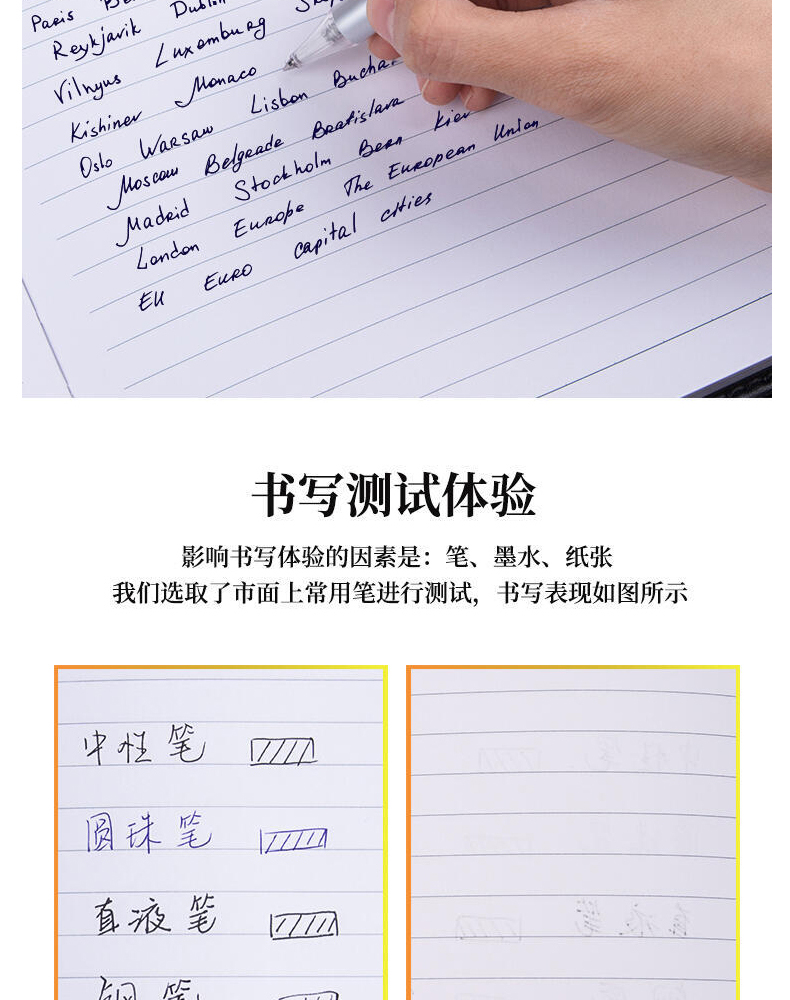 Paris
Reykjavik Dublin
Vilnyus Luxemburg
Kishinev Monaco
Oslo Warsaw Lisbon
Moscow Belgrade Bratislava
Madrid Stockholm Bern Kiev
London Europe The European Union
EU EURO capital cities
书写测试体验
影响书写体验的因素是：笔、墨水、纸张
我们选取了市面上常用笔进行测试，书写表现如图所示
中性笔
圆珠笔
直液笔
钢笔